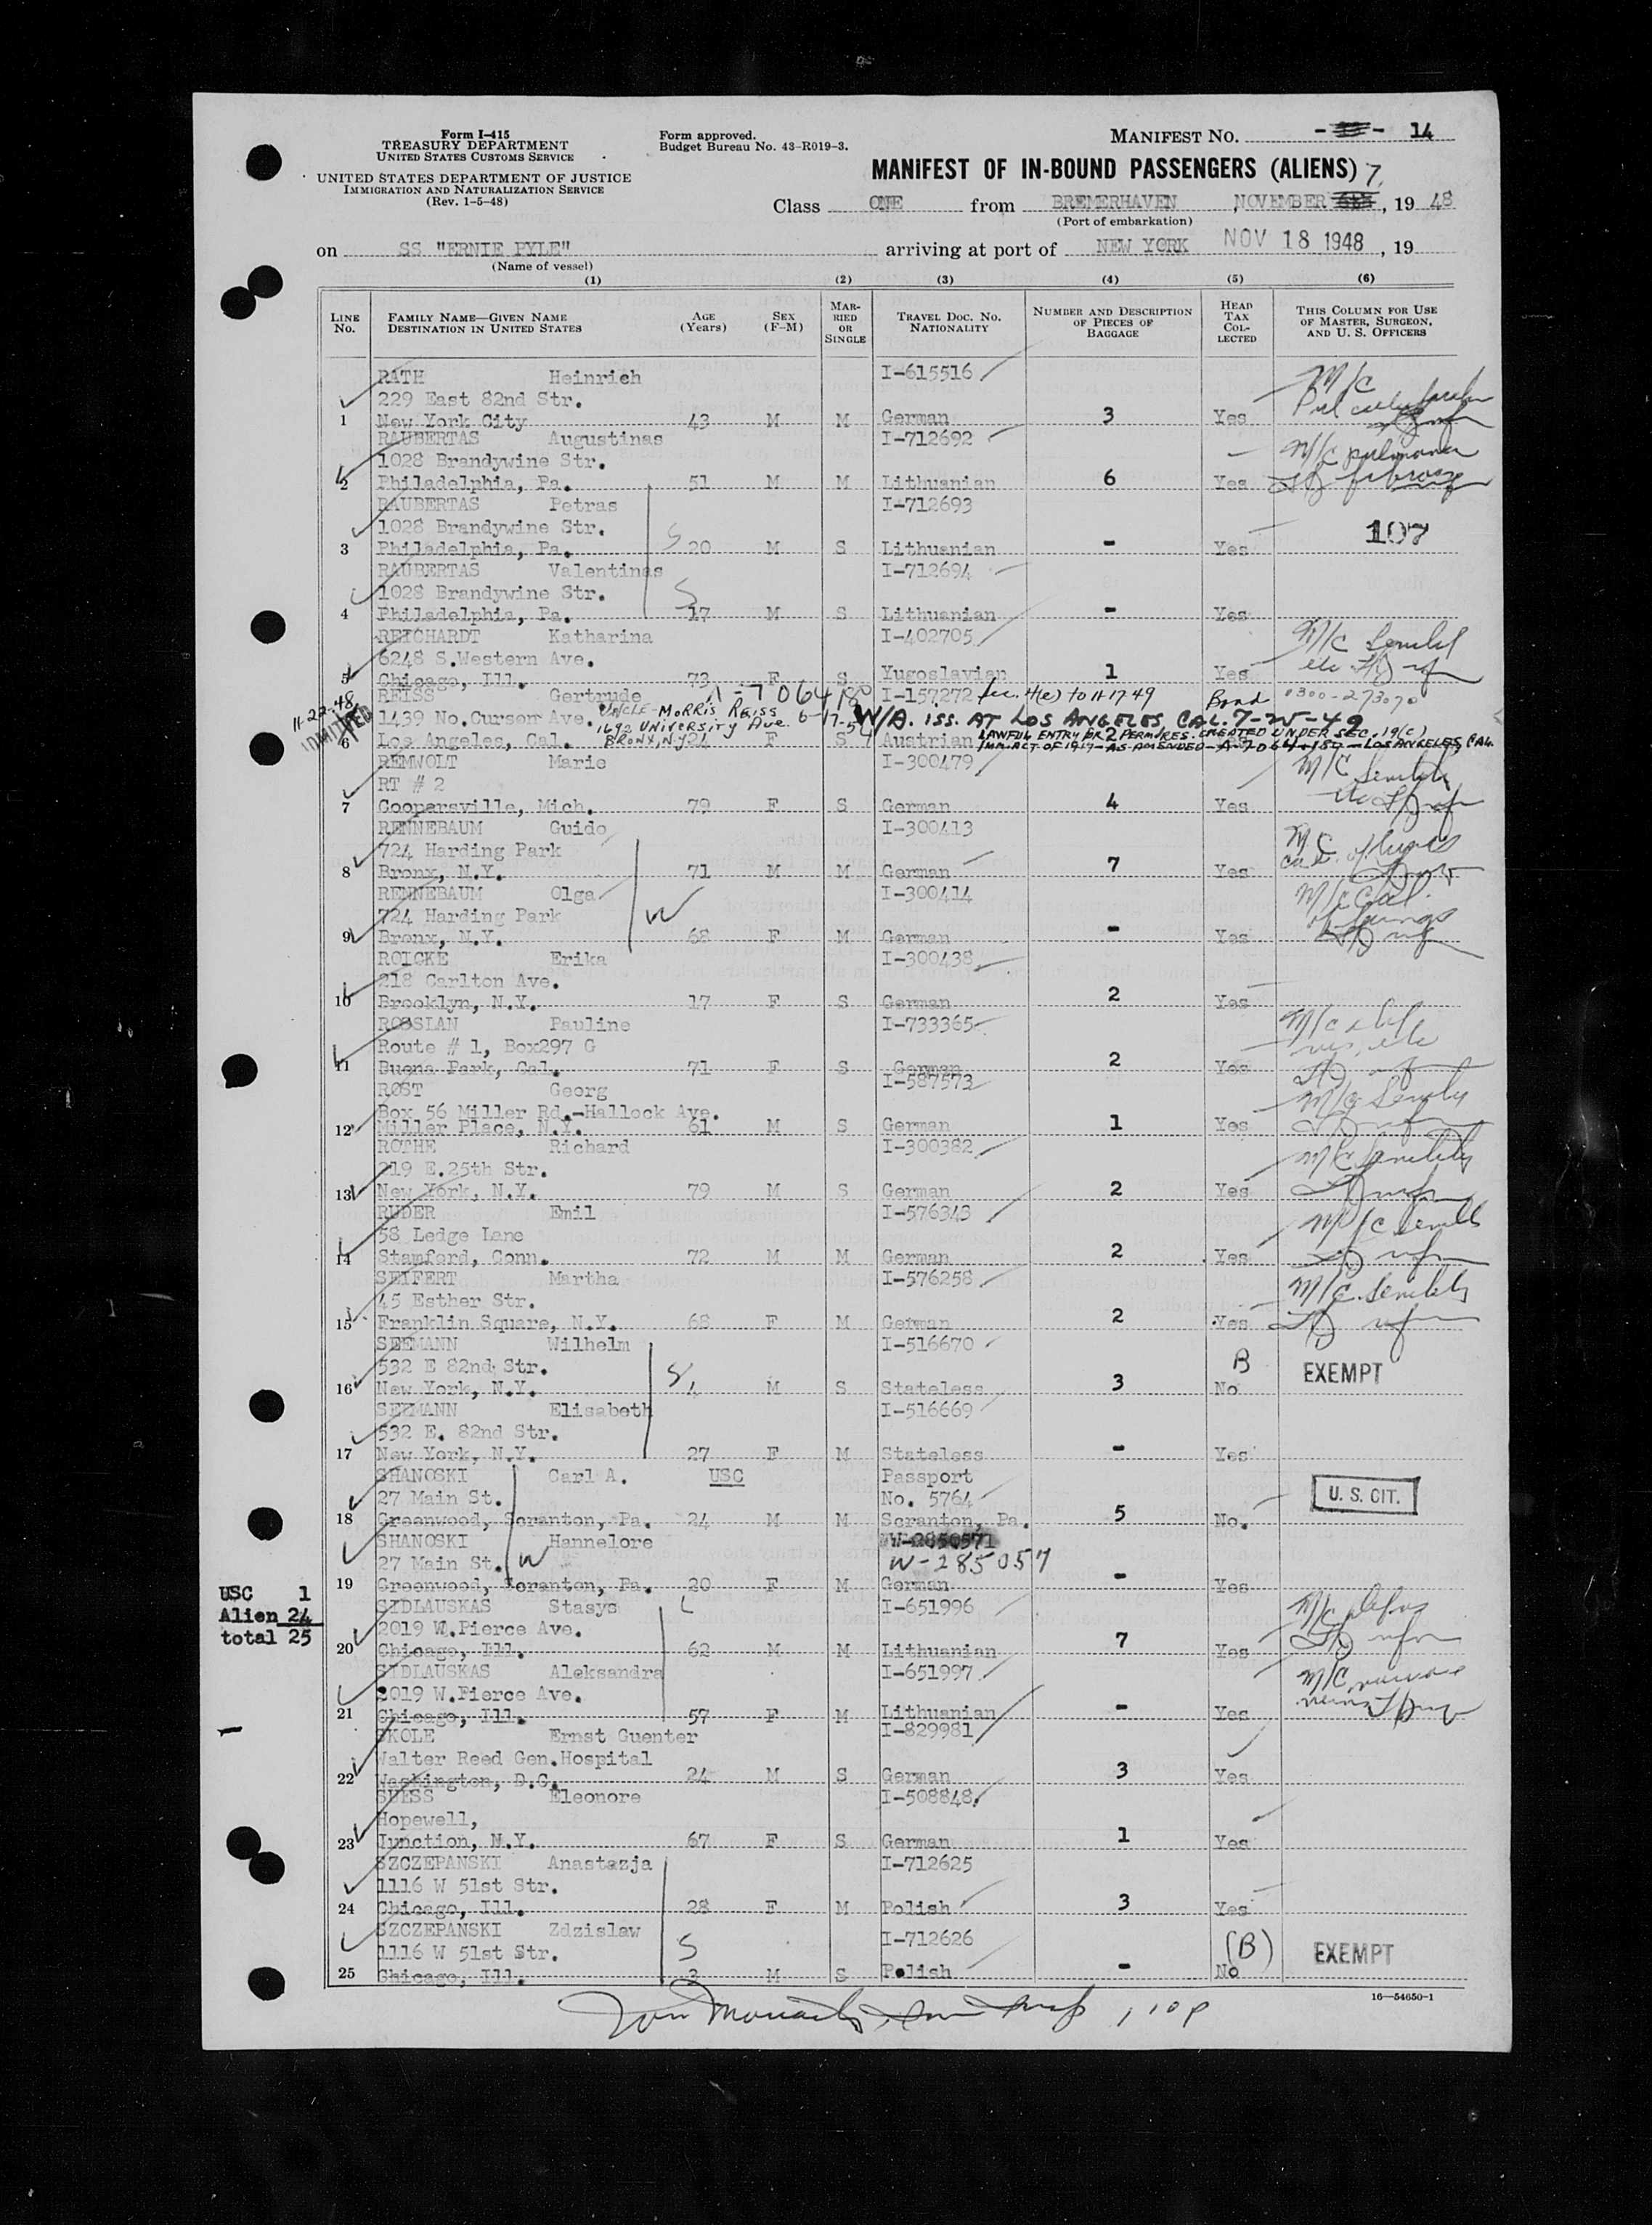 Form I-415
TREASURY DEPARTMENT
UNITED STATES CUSTOMS SERVICE
UNITED STATES DEPARTMENT OF JUSTICE
IMMIGRATION AND NATURALIZATION SERVICE
(Rev. 1-5-48)
Form approved.
Budget Bureau No. 43-R019-3.
MANIFEST NO. 14
MANIFEST OF IN-BOUND PASSENGERS (ALIENS)
Class ONE from BREMERHAVEN, NOVEMBER 7, 1948
(Port of embarkation)
on SS "ERNIE PYLE" arriving at port of NEW YORK NOV 18 1948, 19
(Name of vessel)
(1) (2) (3) (4) (5) (6)
LINE No. FAMILY NAME—GIVEN NAME DESTINATION IN UNITED STATES AGE (Years) SEX (F-M) MARRIED OR SINGLE TRAVEL DOC. NO. NATIONALITY NUMBER AND DESCRIPTION OF PIECES OF BAGGAGE HEAD TAX COLLECTED THIS COLUMN FOR USE OF MASTER, SURGEON, AND U. S. OFFICERS
RATH Heinrich I-615516 M/C
229 East 82nd Str.
1 New York City 43 M M German 3 Yes
RAUBERTAS Augustinas I-712692 M/C
1028 Brandywine Str.
2 Philadelphia, Pa. 51 M M Lithuanian 6 Yes
RAUBERTAS Petras I-712693
1028 Brandywine Str. 107
3 Philadelphia, Pa. S 20 M S Lithuanian - Yes
RAUBERTAS Valentinas I-712694
1028 Brandywine Str. S
4 Philadelphia, Pa. 17 M S Lithuanian - Yes
REICHARDT Katharina I-402705 M/C
6248 S.Western Ave.
5 Chicago, Ill. 73 F S Yugoslavian 1 Yes
REISS Gertrude I-157272 Sec. 4(e) to 11-17-49 Bond 0300-273070
11-22-48 ADMITTED
UNCLE-MORRIS REISS
1439 No.Curson Ave. 1692 UNIVERSITY AVE. W/A. ISS. AT LOS ANGELES, CAL. 7-25-49
BRONX, N.Y.
6 Los Angeles, Cal. 24 F S Austrian 2
LAWFUL ENTRY FOR PERM/RES. CREATED UNDER SEC. 19(c)
IMM. ACT OF 1917-AS AMENDED- LOS ANGELES, CAL.
REMWOLT Marie I-300479 M/C
RT # 2
7 Coopersville, Mich. 79 F S German 4 Yes
RENNEBAUM Guido I-300413 M/C
724 Harding Park
8 Bronx, N.Y. 71 M M German 7 Yes
RENNEBAUM Olga I-300414 M/C
724 Harding Park W
9 Bronx, N.Y. 68 F M German - Yes
ROICKE Erika I-300438
218 Carlton Ave.
10 Brooklyn, N.Y. 17 F S German 2 Yes
ROSSIAN Pauline I-733365 M/C
Route # 1, Box297 G
11 Buena Park, Cal. 71 F S German 2 Yes
ROST Georg I-587573 M/C
Box 56 Miller Rd.-Hallock Ave.
12 Miller Place, N.Y. 61 M S German 1 Yes
ROTHE Richard I-300382 M/C Senility
219 E.25th Str.
13 New York, N.Y. 79 M S German 2 Yes
RUDER Emil I-576343 M/C
58 Ledge Lane
14 Stamford, Conn. 72 M M German 2 Yes
SEIFERT Martha I-576258 M/C Senility
45 Esther Str.
15 Franklin Square, N.Y. 68 F M German 2 Yes
SEEMANN Wilhelm I-516670
532 E 82nd Str. S B EXEMPT
16 New York, N.Y. 4 M S Stateless 3 No
SEEMANN Elisabeth I-516669
532 E. 82nd Str.
17 New York, N.Y. 27 F M Stateless - Yes
SHANOSKI Carl A. USC Passport
27 Main St. No. 5764 U. S. CIT.
18 Greenwood, Scranton, Pa. 24 M M Scranton, Pa. 5 No.
SHANOSKI Hannelore W-2850571
27 Main St. W W-285057
19 Greenwood, Scranton, Pa. 20 F M German - Yes
USC 1
Alien 24
total 25
SIDLAUSKAS Stasys I-651996 M/C
2019 W.Pierce Ave.
20 Chicago, Ill. 62 M M Lithuanian 7 Yes
SIDLAUSKAS Aleksandra I-651997 M/C
2019 W.Pierce Ave.
21 Chicago, Ill. 57 F M Lithuanian - Yes
SKOLE Ernst Guenter I-829981
Walter Reed Gen.Hospital
22 Washington, D.C. 24 M S German 3 Yes
SUESS Eleonore I-508848
Hopewell,
23 Junction, N.Y. 67 F S German 1 Yes
SZCZEPANSKI Anastazja I-712625
1116 W 51st Str.
24 Chicago, Ill. 28 F M Polish 3 Yes
SZCZEPANSKI Zdzislaw I-712626
1116 W 51st Str. S (B) EXEMPT
25 Chicago, Ill. 3 M S Polish - No
16—54650-1